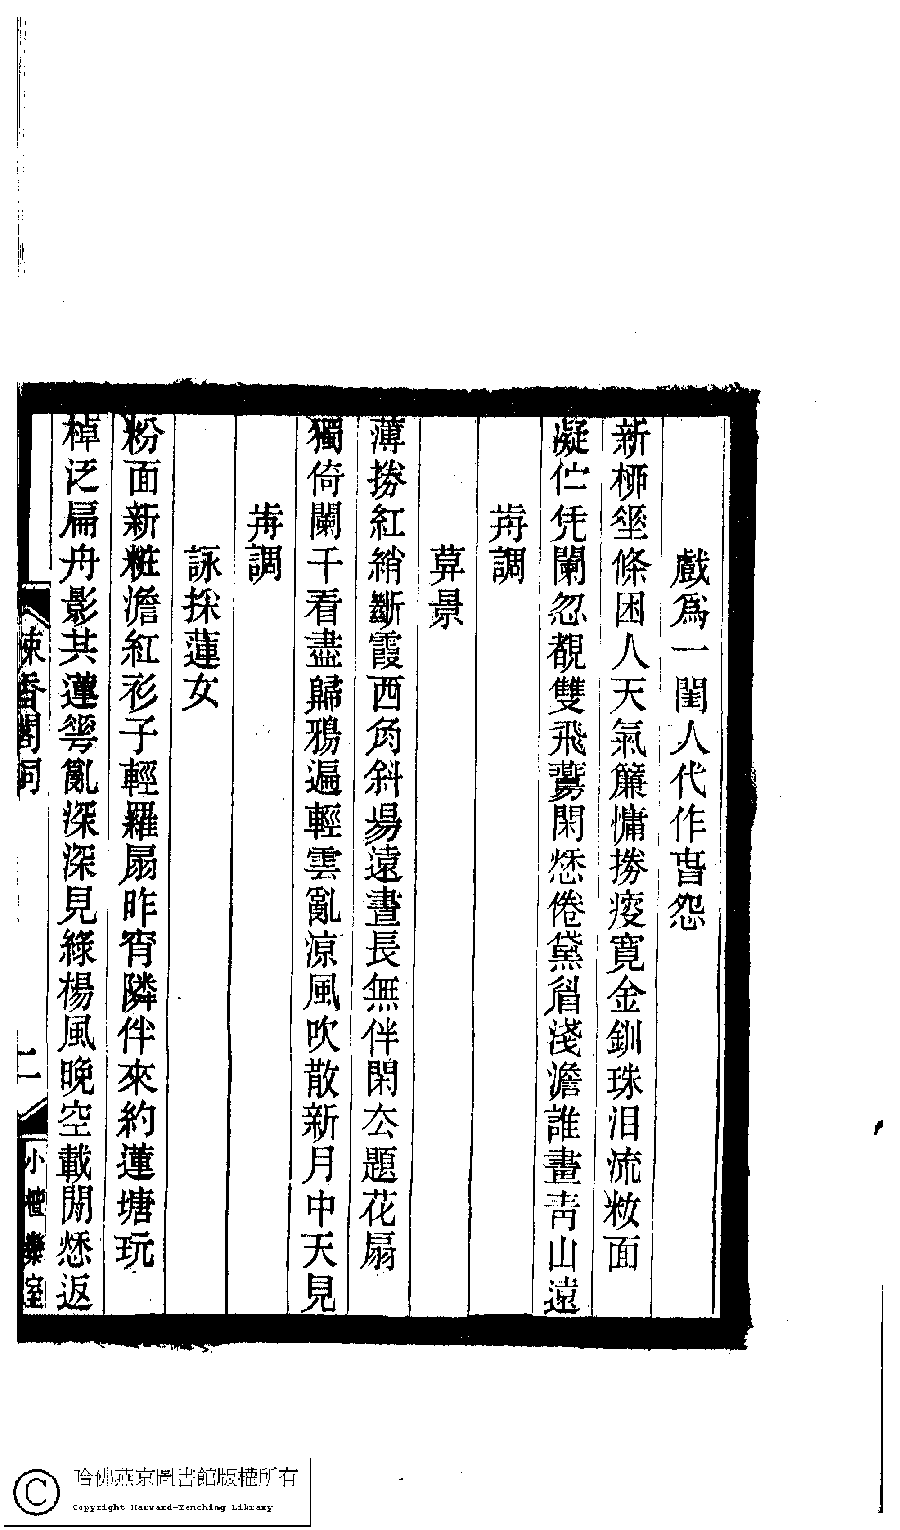 戲爲一閨人代作旾怨
新栁𡍮條困人天氣簾慵捲瘦寬金釧珠泪流妝面
凝伫凭闌忽覩雙飛鷰閑愁倦黛眉淺澹誰畫靑山遠
歬調
萛景
薄捲紅綃斷霞西角斜昜遠晝長無伴閑厺題花扇
獨倚闌干看盡歸鴉遍輕雲亂涼風吹散新月中天見
歬調
詠採蓮女
粉面新粧澹紅衫子輕羅扇昨宵隣伴來約蓮塘玩
棹泛扁舟影共蓮𠌶亂深深見綠楊風晚空載閒愁返
棟香閣詞
二
小檀欒室
哈佛燕京圖書館版權所有
Copyright Harvard-Yenching Library